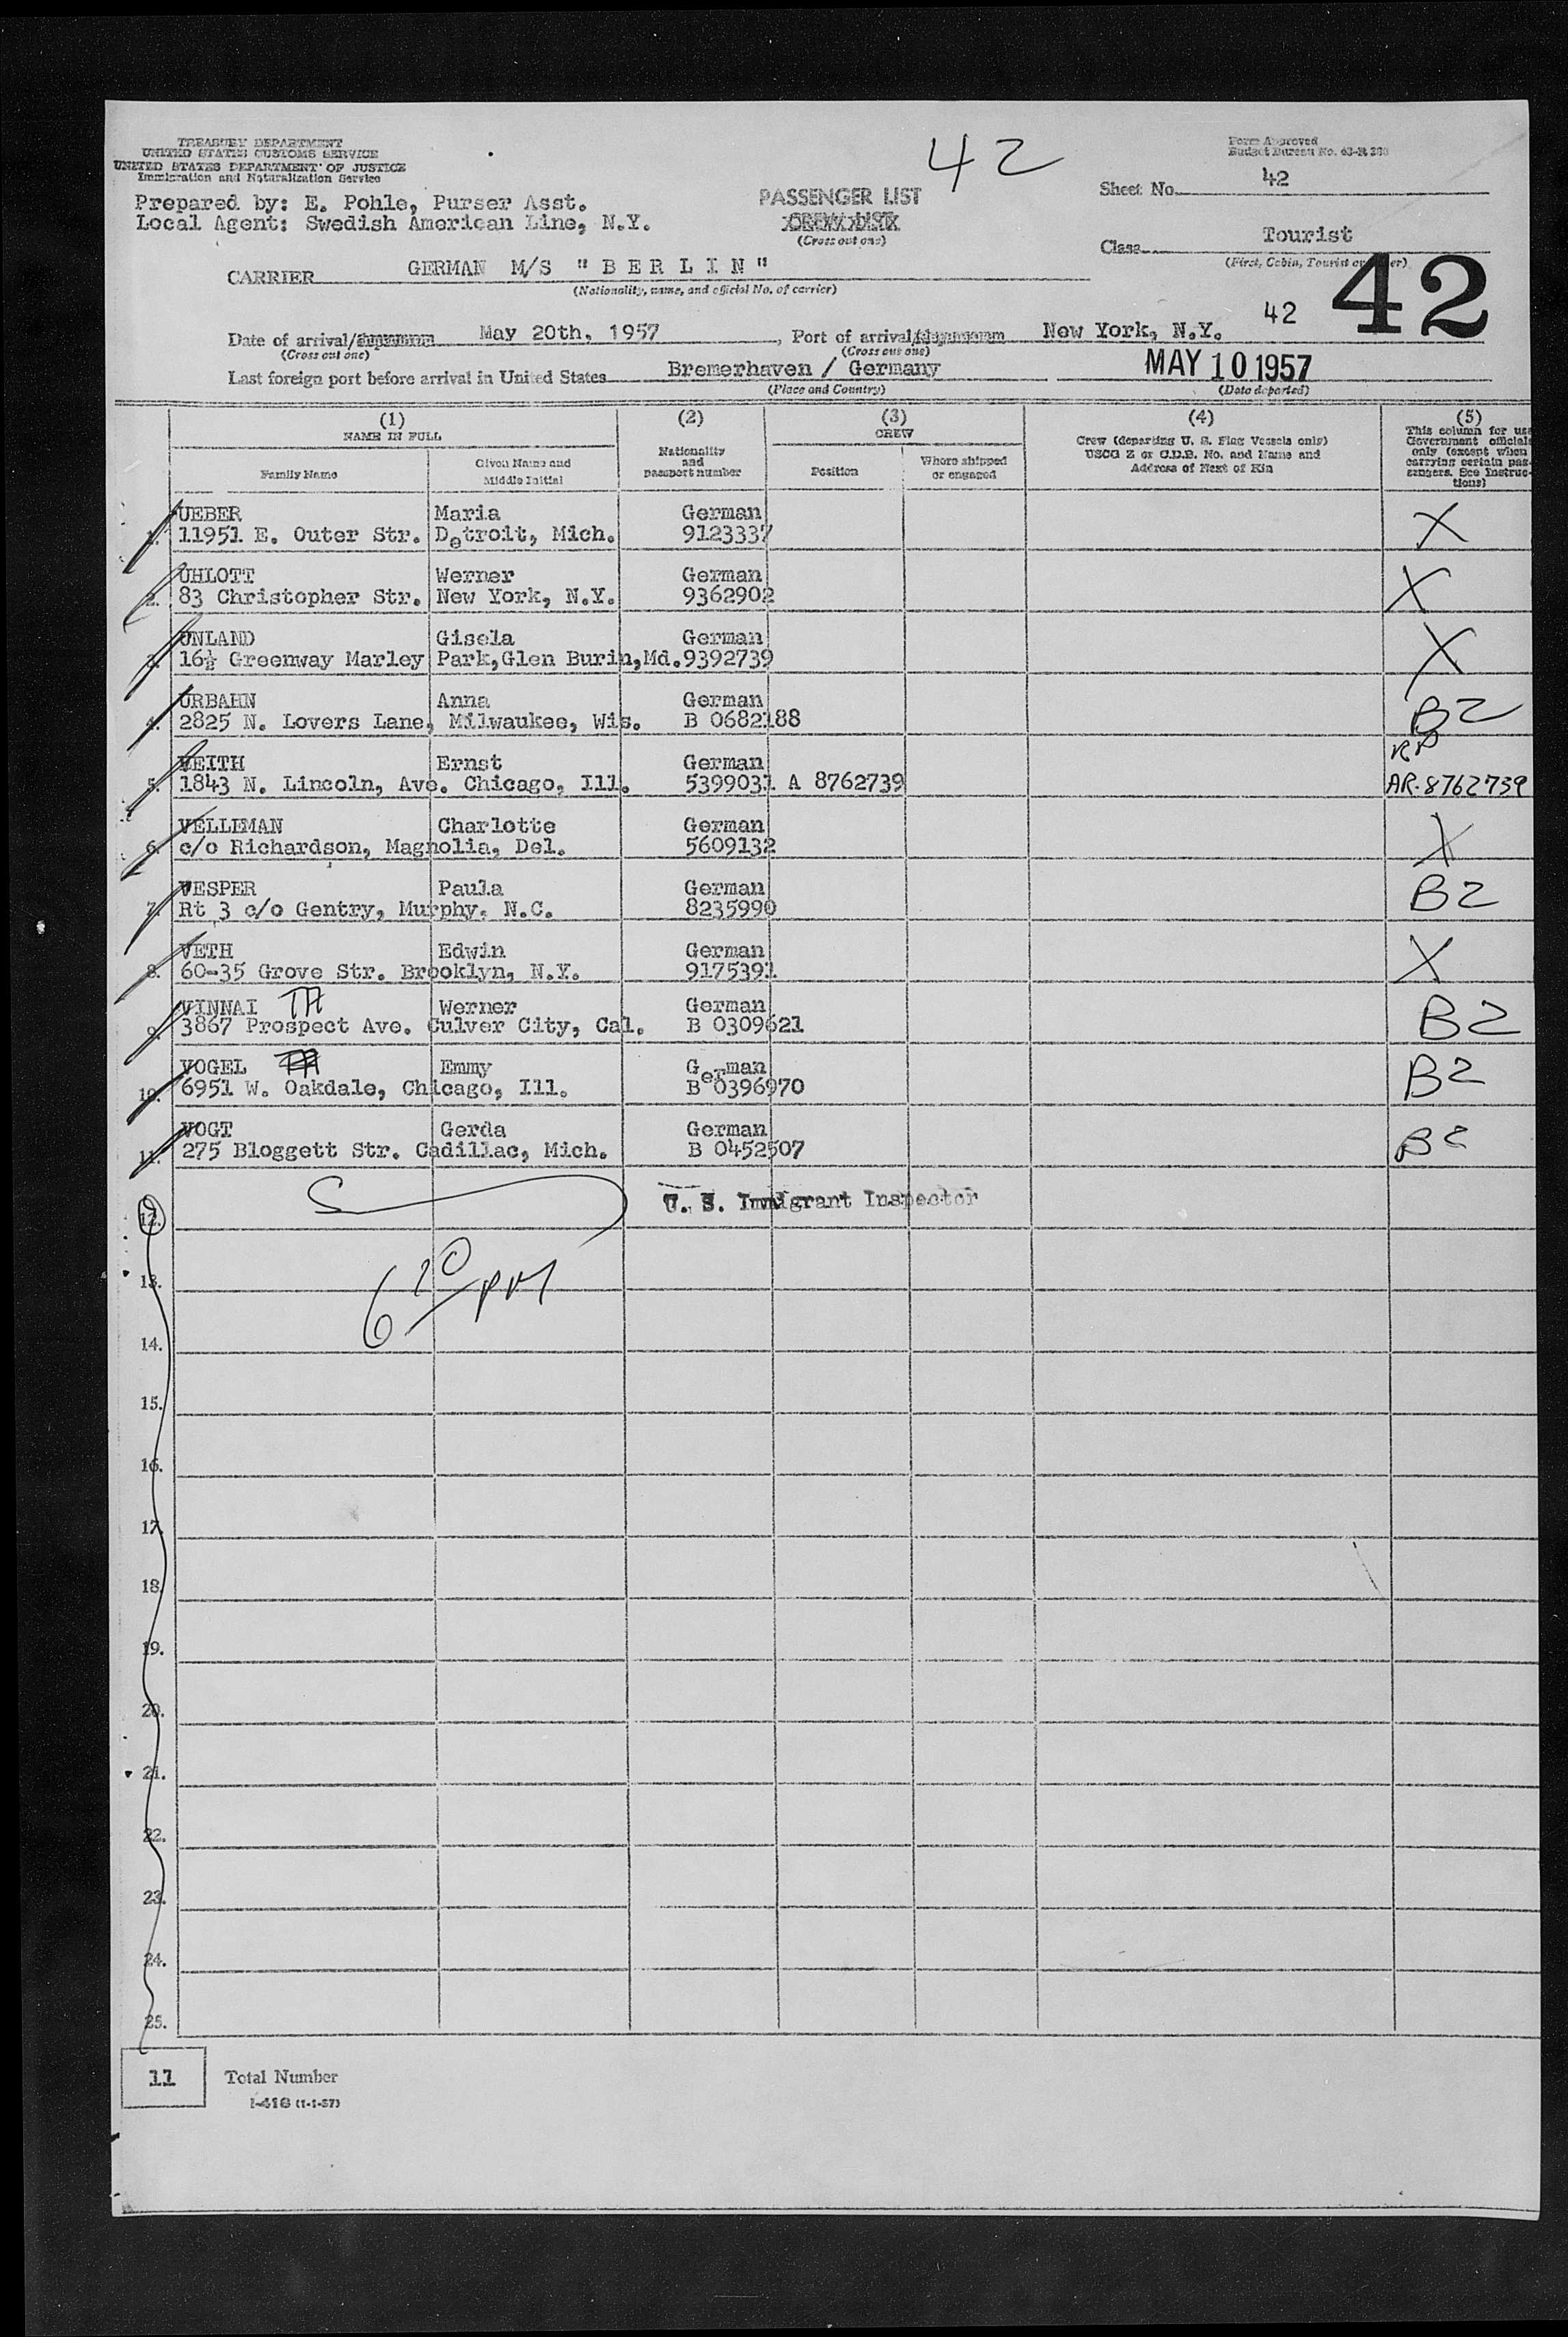 TREASURY DEPARTMENT
UNITED STATES CUSTOMS SERVICE
UNITED STATES DEPARTMENT OF JUSTICE
Immigration and Naturalization Service
Form Approved
Budget Bureau No. 43-R
42
Sheet No. 42
Prepared by: E. Pohle, Purser Asst.
Local Agent: Swedish American Line, N.Y.
PASSENGER LIST
CREW LIST
(Cross out one)
Class Tourist
(First, Cabin, Tourist or other)
CARRIER GERMAN M/S "BERLIN"
(Nationality, name, and official No. of carrier)
42
42
Date of arrival/departure May 20th, 1957, Port of arrival/departure New York, N.Y.
(Cross out one) (Cross out one)
Last foreign port before arrival in United States Bremerhaven / Germany MAY 10 1957
(Place and Country) (Date departed)
(1) (2) (3) (4) (5)
NAME IN FULL
Family Name
Given Name and Middle Initial
Nationality and passport number
CREW
Position
Where shipped or engaged
Crew (departing U. S. Flag Vessels only)
USCG Z or C.D.B. No. and Name and
Address of Next of Kin
This column for use
Government officials
only (except when
carrying certain pas-
sengers. See Instruc-
tions)
1. UEBER Maria German X
11951 E. Outer Str. Detroit, Mich. 9123337
2. UHLOTT Werner German X
83 Christopher Str. New York, N.Y. 9362902
3. UNLAND Gisela German X
16½ Greenway Marley Park,Glen Burin,Md. 9392739
4. URBAHN Anna German B2
2825 N. Lovers Lane, Milwaukee, Wis. B 0682188
5. VEITH Ernst German RP
1843 N. Lincoln, Ave. Chicago, Ill. 5399031 A 8762739 AR-8762739
6. VELLEMAN Charlotte German X
c/o Richardson, Magnolia, Del. 5609132
7. VESPER Paula German B2
Rt 3 c/o Gentry, Murphy, N.C. 8235990
8. VETH Edwin German X
60-35 Grove Str. Brooklyn, N.Y. 9175391
9. VINNAI Werner German B2
3867 Prospect Ave. Culver City, Cal. B 0309621
10. VOGEL Emmy German B2
6951 W. Oakdale, Chicago, Ill. B 0396970
11. VOGT Gerda German B2
275 Bloggett Str. Cadillac, Mich. B 0452507
12. U. S. Immigrant Inspector
13.
14.
15.
16.
17.
18.
19.
20.
21.
22.
23.
24.
25.
11 Total Number
I-418 (1-1-57)